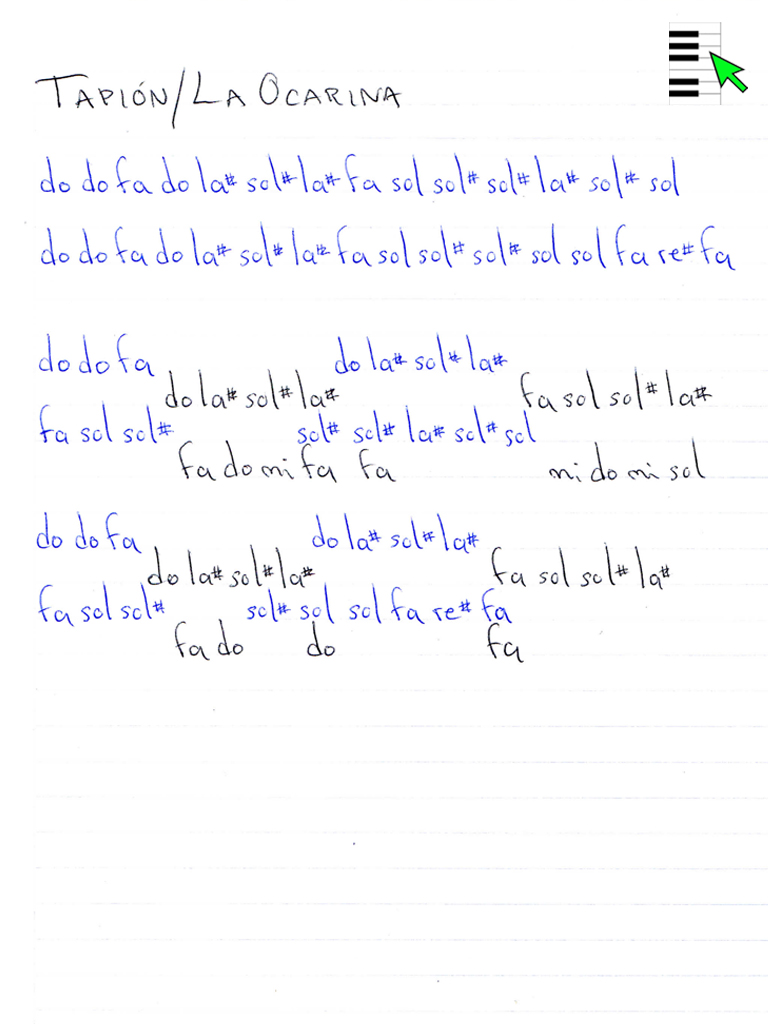 TAPIÓN/LA OCARINA
do do fa do la# sol# la# fa sol sol# sol# la# sol# sol
do do fa do la# sol# la# fa sol sol# sol# sol sol fa re# fa
do do fa do la# sol# la#
do la# sol# la# fa sol sol# la#
fa sol sol# sol# sol# la# sol# sol
fa do mi fa fa mi do mi sol
do do fa do la# sol# la#
do la# sol# la# fa sol sol# la#
fa sol sol# sol# sol sol fa re# fa
fa do do fa